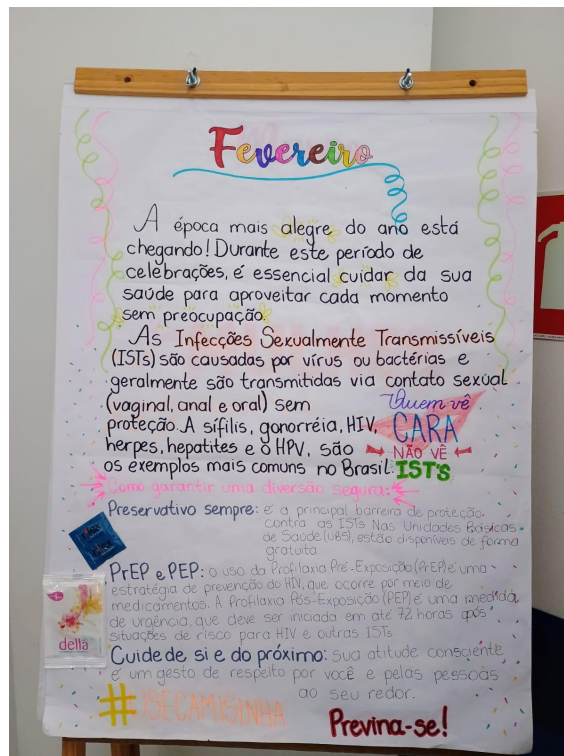 Fevereiro
A época mais alegre do ano está
chegando! Durante este período de
celebrações, é essencial cuidar da sua
saúde para aproveitar cada momento
sem preocupação.
As Infecções Sexualmente Transmissíveis
(ISTs) são causadas por vírus ou bactérias e
geralmente são transmitidas via contato sexual
(vaginal, anal e oral) sem
proteção. A sífilis, gonorréia, HIV,
herpes, hepatites e o HPV, são
os exemplos mais comuns no Brasil.
Quem vê
CARA
NÃO VÊ
ISTS
Como garantir uma diversão segura:
Preservativo sempre: é a principal barreira de proteção
contra as ISTs Nas Unidades Básicas
de Saúde (UBS), estão disponíveis de forma
gratuita
PrEP e PEP: o uso da Profilaxia Pré-Exposição (PrEP) é uma
estratégia de prevenção do HIV, que ocorre por meio de
medicamentos. A Profilaxia Pós-Exposição (PEP) é uma medida
de urgência, que deve ser iniciada em até 72 horas após
situações de risco para HIV e outras ISTs
della
Cuide de si e do próximo: sua atitude consciente
é um gesto de respeito por você e pelas pessoas
ao seu redor.
Previna-se!